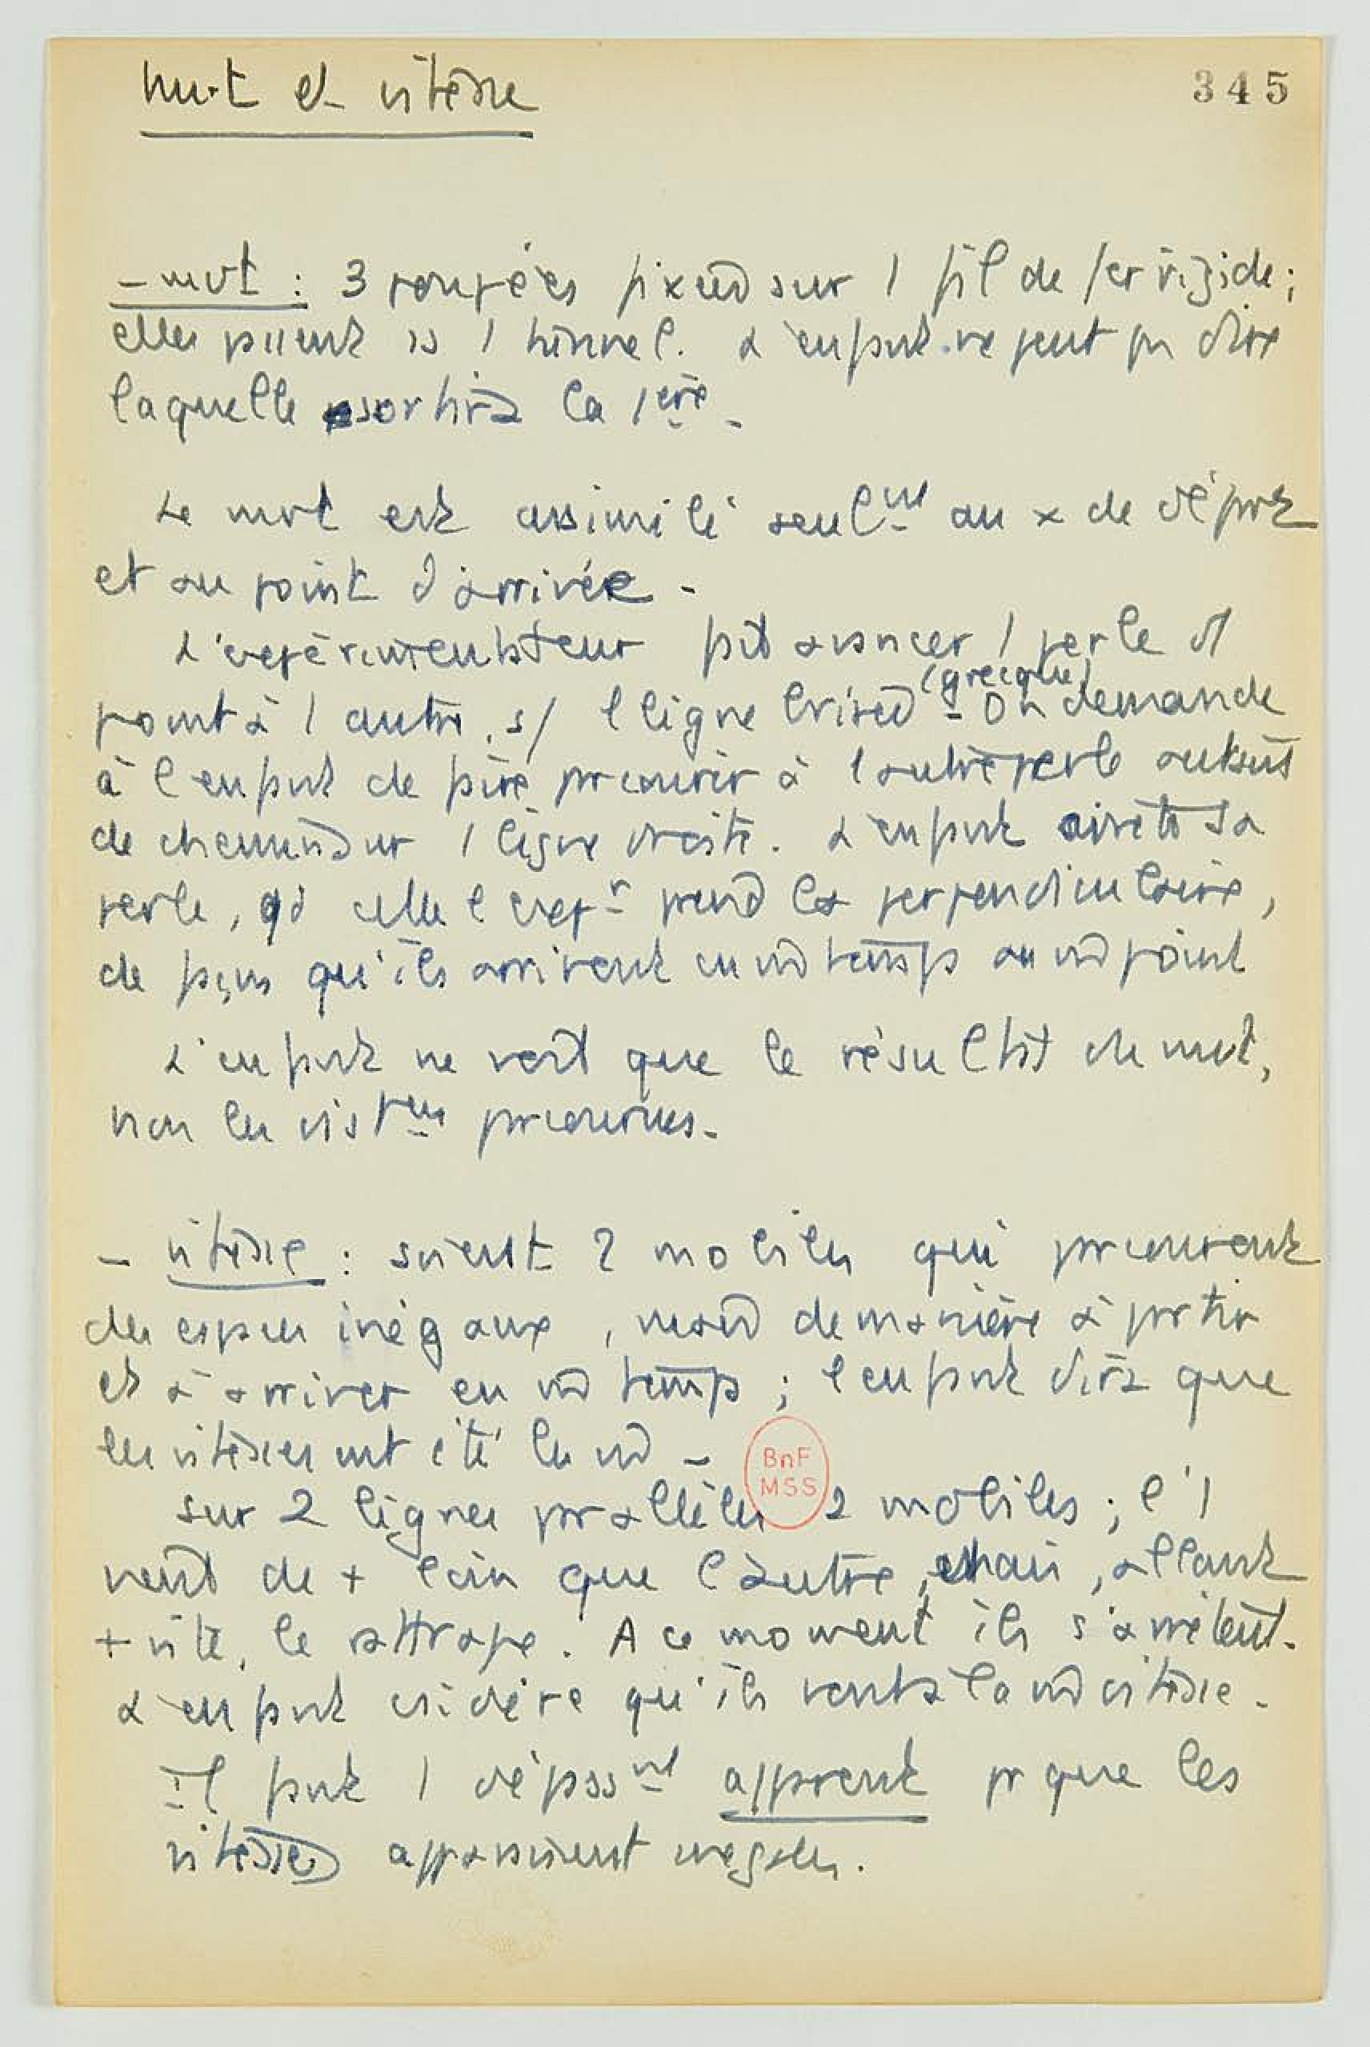 mvt et vitesse
345
- mvt : 3 poupées fixées sur 1 fil de fer rigide ;
elles passent ds 1 tunnel. L'enfant ne peut pas dire
laquelle sortira la 1ère.
Le mvt est assimilé seulmt au x de départ
et au point d'arrivée -
L'expérimentateur fait avancer 1 perle d'1
point à 1 autre, s/ 1 ligne brisée
(grecque)
- On demande
à l'enfant de faire parcourir à 1 autre perle autant
de chemin sur 1 ligne droite. L'enfant arrête sa
perle, qd celle de l'expr prend la perpendiculaire,
de façon qu'ils arrivent en mm temps au mm point
L'enfant ne voit que le résultat du mvt,
non les distces parcourues.
- vitesse : soient 2 mobiles qui parcourent
des espaces inégaux, mais de manière à partir
et à arriver en mm temps ; l'enfant dira que
les vitesses ont été les mm -
BnF
MSS
sur 2 lignes parallèles 2 mobiles ; l'1
vient de + loin que l'autre, mais, allant
+ vite, le rattrape. A ce moment ils s'arrêtent.
L'enfant considère qu'ils vont à la mm vitesse.
Il faut 1 dépassmt apparent pr que les
vitesses apparaissent inégales.